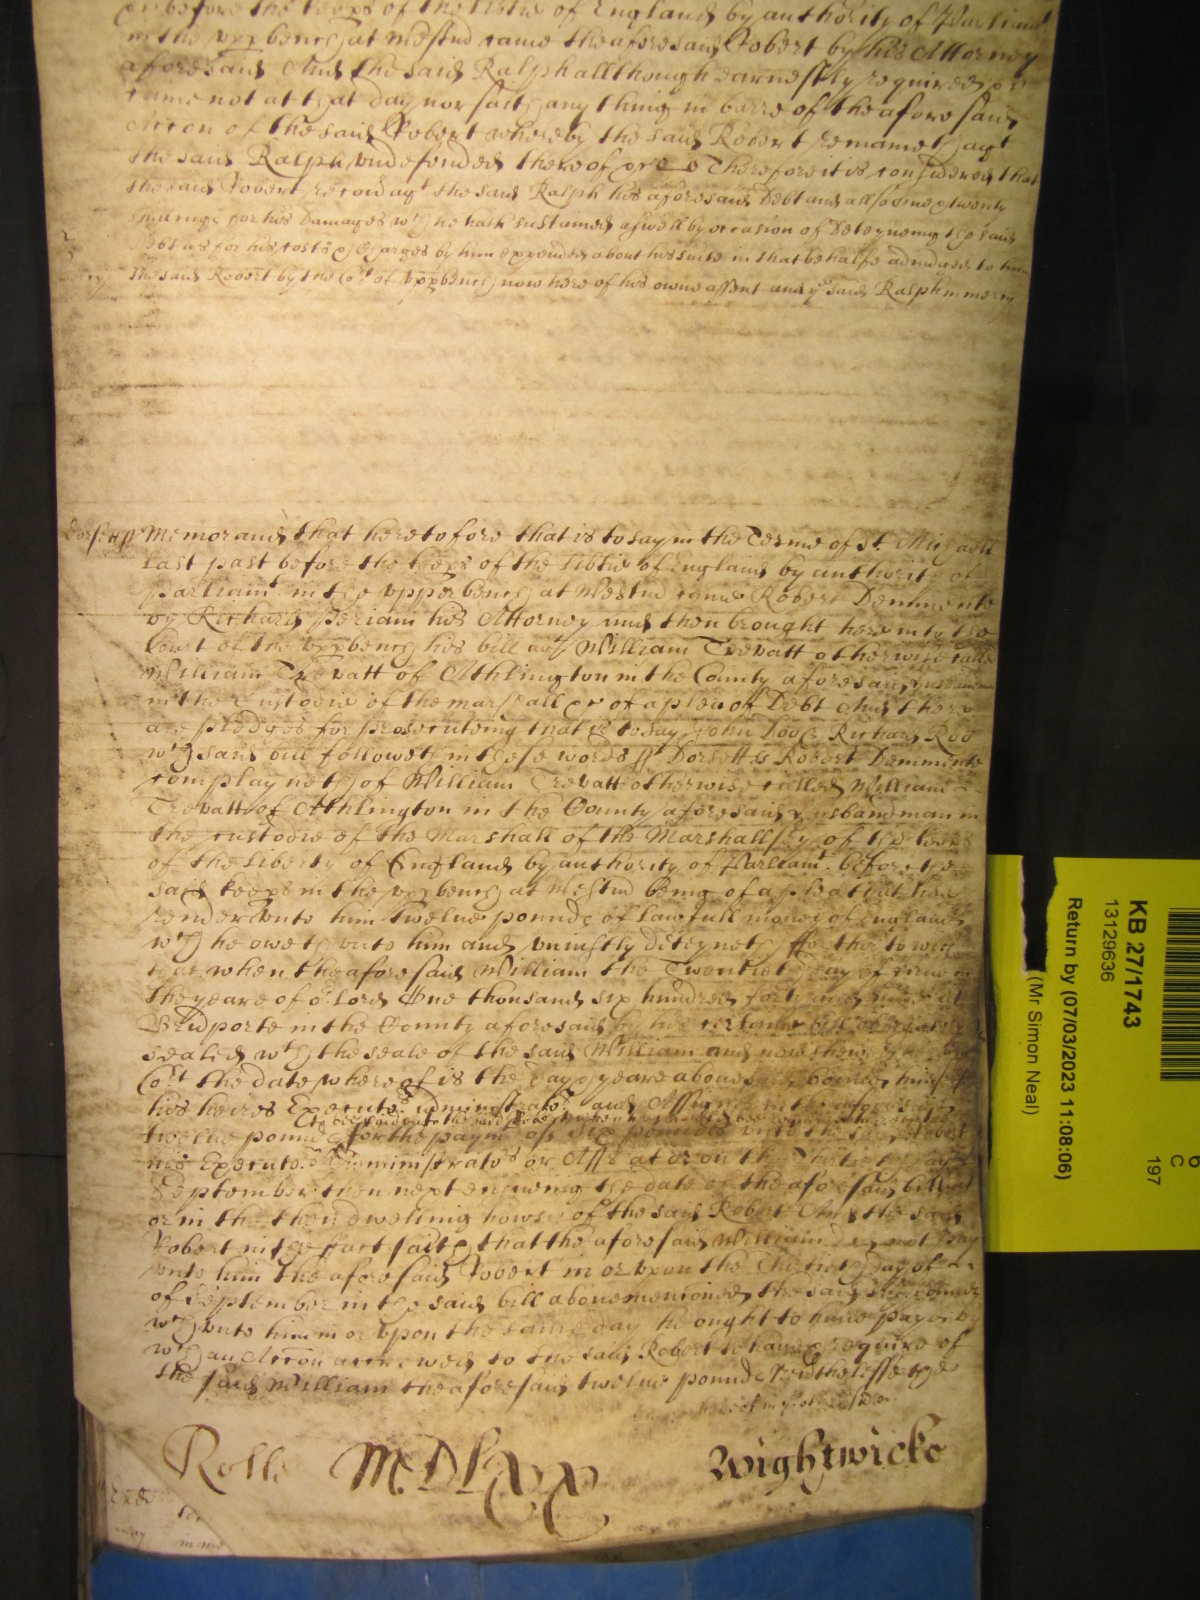 before the keeps of the libtie of England by authority of Parliamt
in the uppbench at Westmr came the aforesaid Robert by his Attorney
aforesaid And the said Ralph allthough earnestly required
came not at that day nor saith any thing in barre of the aforesaid
Accon of the said Robert whereby the said Robert remaineth agt
the said Ralph undefended thereof Therefore it is considered that
the said Robert recover agt the said Ralph his aforesaid Debt and allso twenty
for his Damages wch he hath sustained aswell by occasion of Deteyneing the said
Debt as for his costs & Charges by him expended about his suite in that behalfe adiudged to him
the said Robert by the Cort of uppbench now here of his owne assent and ye said Ralph in mercy
Dorsett ss Memorand that heretofore that is to say in the Terme of St. Michaell
last past before the keeps of the libtie of England by authority of
Parliamt in the upper bench at Westmr came Robert Demmente
by Richard Periam his Attorney and then brought here into the
Court of the uppbench his bill agt William Trevatt otherwise called
William Trevatt of Athlington in the County aforesaid husbandman
in the Custodie of the marshall &c of a plea of Debt And there
are pledges for prosecuteing that is to say John Doo & Richard Roo
wch said bill followeth in these words ss Dorsett ss Robert Demmente
complayneth of William Trevatt otherwise called William
Trevatt of Athlington in the County aforesaid husbandman in
the custodie of the Marshall of the Marshallsey of the keeps
of the liberty of England by authority of Parliamt. before the
said keeps in the uppbench at Westmr being of a plea that hee
render unto him twelve pounds of lawfull money of England
wch he oweth unto him and uniustly deteyneth ffor that to witt
that when the aforesaid William the Twentieth day of June in
the yeare of or Lord One thousand six hundred forty and nine at
Bridporte in the County aforesaid by his certaine bill obligatory
sealed wth the seale of the said William and now shewed
Cort the date whereof is the day & yeare abovesaid bound himselfe
his heires Executors administrators and Assignes in the aforesaid
twelve pounds for the paymt of six pounds unto the said Robert
his Executors Administrators or Asss at or on the Thirtieth day of
September then next ensueing the date of the aforesaid bill at
or in the then dwelling howse of the said Robert And the said
Robert in the fact saith that the aforesaid William did not pay
unto him the aforesaid Robert in or upon the Thirtieth day of
of September in the said bill above mentioned the said six pounds
wch unto him in or upon the same day he ought to have payd by
wch an Accon accrewed to the said Robert to have & require of
the said William the aforesaid twelve pounds Neverthelesse the
Rolle MDLXX Wightwicke
KB 27/1743
13129636
Return by (07/03/2023 11:08:06)
(Mr Simon Neal)
C
197